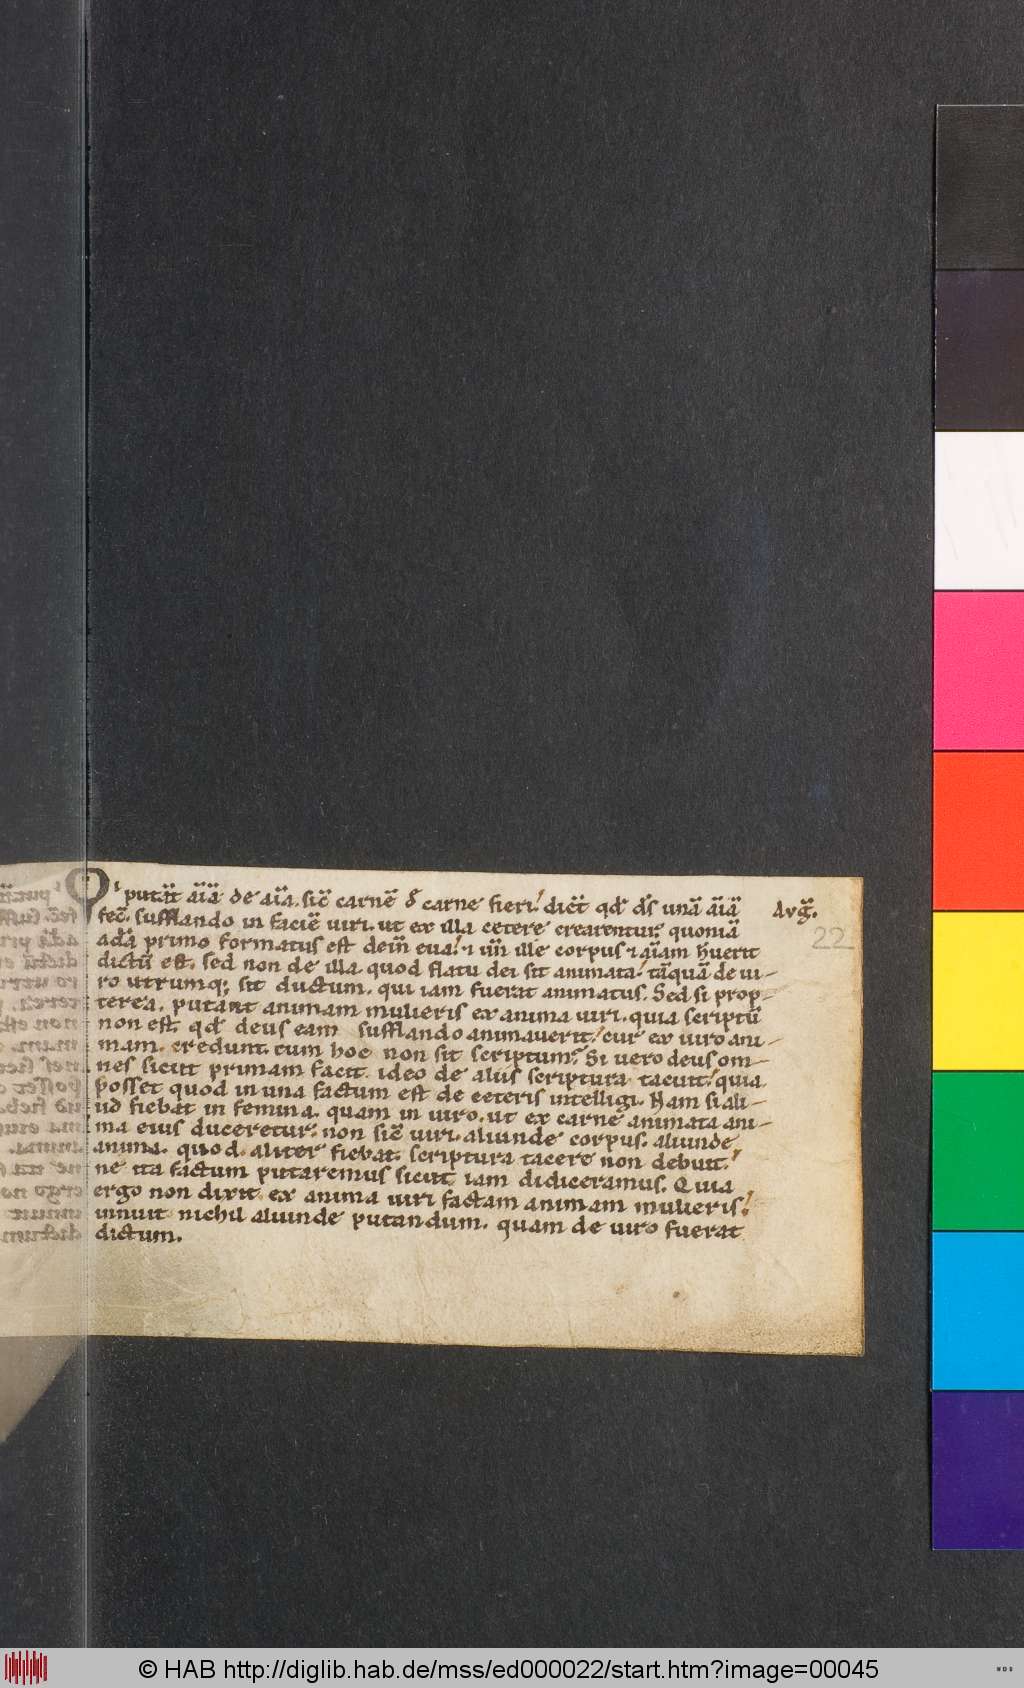 Qi putāt aīā de aīa. sic̄ carnē ꝺ carne fieri! dic̄t qd̄ ds̄ unā aīā
fec̄. sufflando in faciē uiri. ut ex illa cetere crearentur. quoniā
adā primo formatus est dein̄ eua. ⁊ ille corpus ⁊ aīam huerit
dictū est. sed non de illa. quod flatu dei sit animata. tāquā de ui-
ro utrumq; sit ductum. qui iam fuerat animatus. Sed si prop-
terea. putant animam mulieris ex anima uiri. quia scriptū
non est. qd̄ deus eam sufflando animauerit! cur ex uiro ani-
mam. credunt. cum hoc non sit scriptum? Si uero deus om-
nes sicut primam facit. ideo de aliis scriptura tacuit! quia
posset quod in una factum est de ceteris intelligi. Nam si ali-
ud fiebat in femina. quam in uiro. ut ex carne animata ani-
ma eius duceretur. non sic̄ uiri. aliunde corpus. aliunde
anima. quod aliter fiebat. scriptura tacere non debuit!
ne ita factum putaremus sicut iam didiceramus. Quia
ergo non dixit ex anima uiri factam animam mulieris!
innuit nichil aliunde putandum. quam de uiro fuerat
dictum.
Avg̅.
22
© HAB http://diglib.hab.de/mss/ed000022/start.htm?image=00045